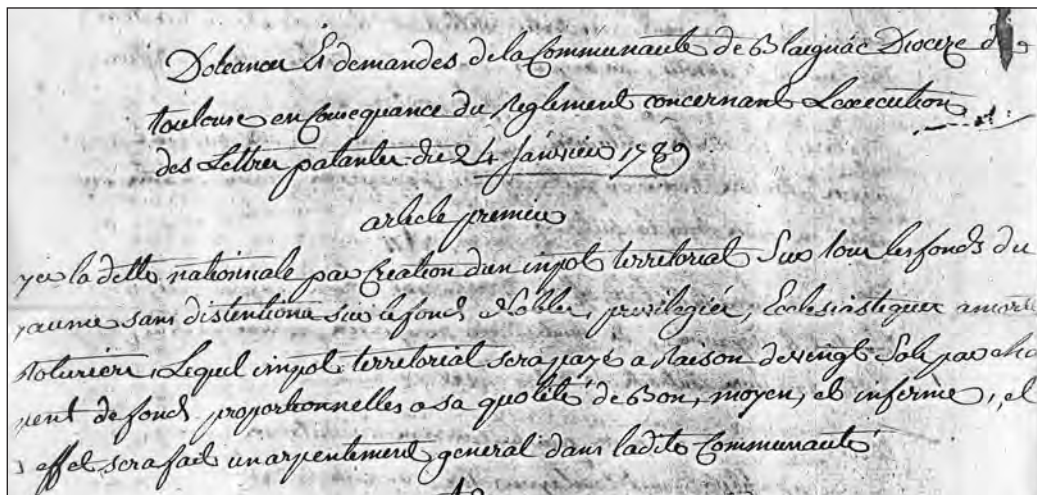 Doleances Et demandes de la Communauté de Blaignac Dioceze de
toulouse en Consequance du Reglement concernant Lexecution
des Lettres patantes du 24 Janvier 1789
article premier
yer la dette nationnale par Creation d'un impot territorial Sur tous les fonds du
yaume sans distention sur le fonds Nobles, privilegiés, Ecclesiastiques amortis
Roturiers, Lequel impot territorial sera payé a Raison de vingt Sols par cha
pent de fonds proportionnelles a sa quotité de Bon, moyen, et inferme, et
effet sera fait un arpentement general dans ladite Communauté